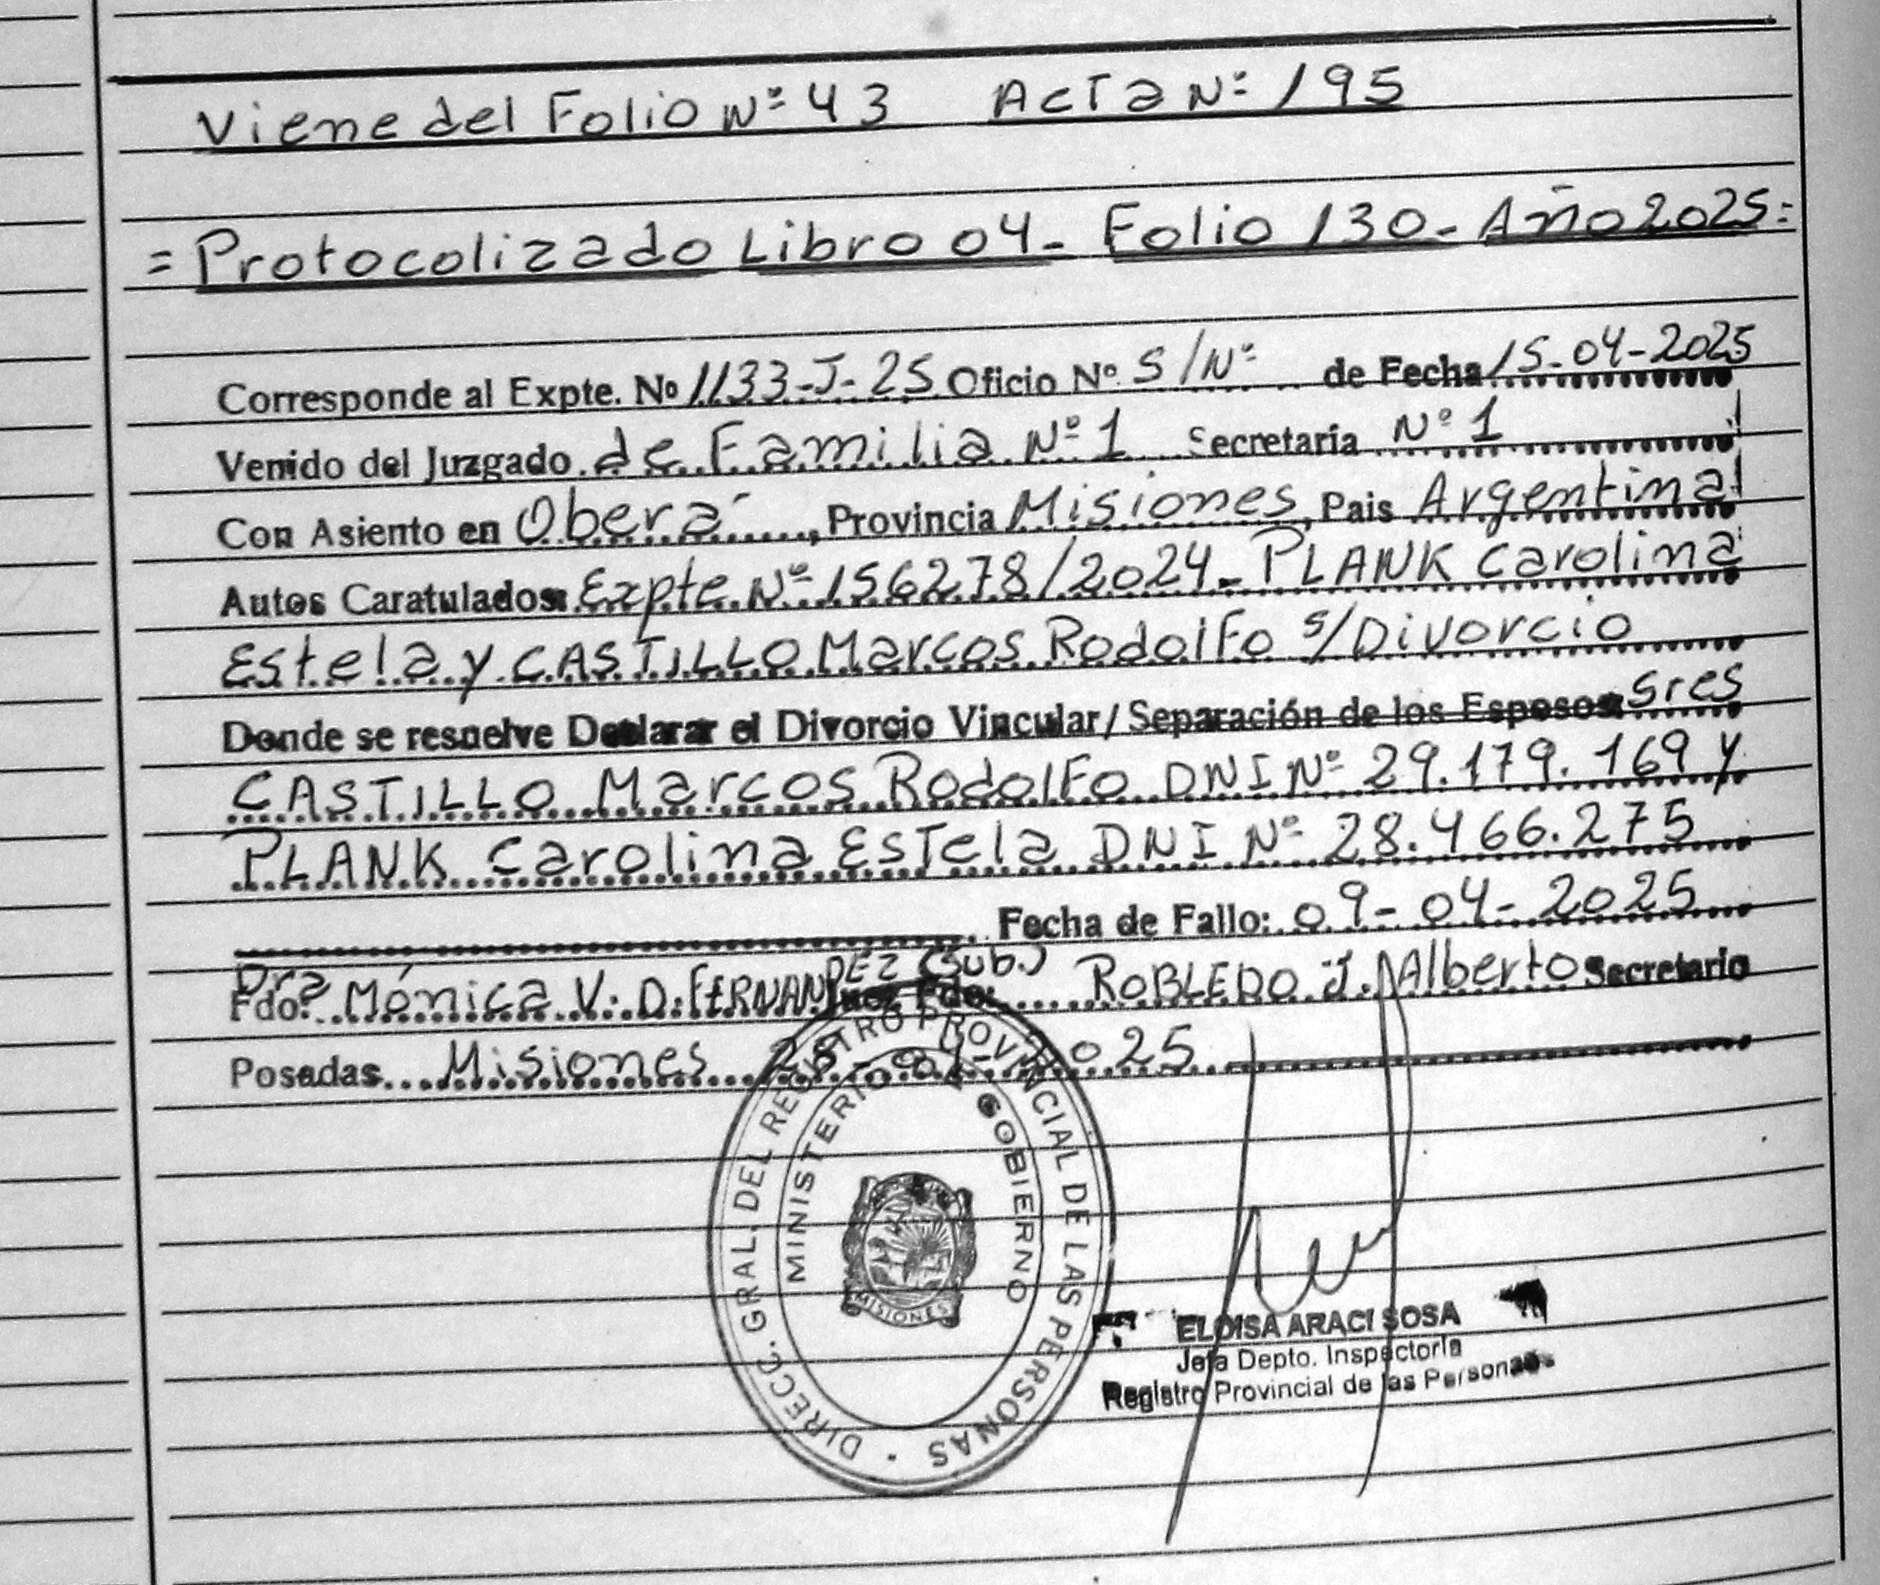 Viene del Folio Nº 43 Acta Nº 195
= Protocolizado Libro 04- Folio 130- Año 2025=
Corresponde al Expte. Nº 1133-J-25 Oficio Nº S/Nº de Fecha 15-04-2025
Venido del Juzgado de Familia Nº 1 Secretaría Nº 1
Con Asiento en Oberá, Provincia Misiones, Pais Argentina
Autos Caratulados: Expte Nº 156278/2024- PLANK Carolina
Estela y CASTILLO Marcos Rodolfo s/Divorcio
Donde se resuelve Declarar el Divorcio Vincular/ Separación de los Esposos: Sres
CASTILLO Marcos Rodolfo DNI Nº 29.179.169 y
PLANK Carolina Estela DNI Nº 28.466.275
Fecha de Fallo: 09-04-2025
Fdo: Dra Mónica V. D. FERNANDEZ (Sub.) Juez Fdo: ROBLEDO J. Alberto Secretario
Posadas Misiones
DIRECC. GRAL. DEL REGISTRO PROVINCIAL DE LAS PERSONAS
MINISTERIO DE GOBIERNO
MISIONES
ELOISA ARACI SOSA
Jefa Depto. Inspectoría
Registro Provincial de las Personas